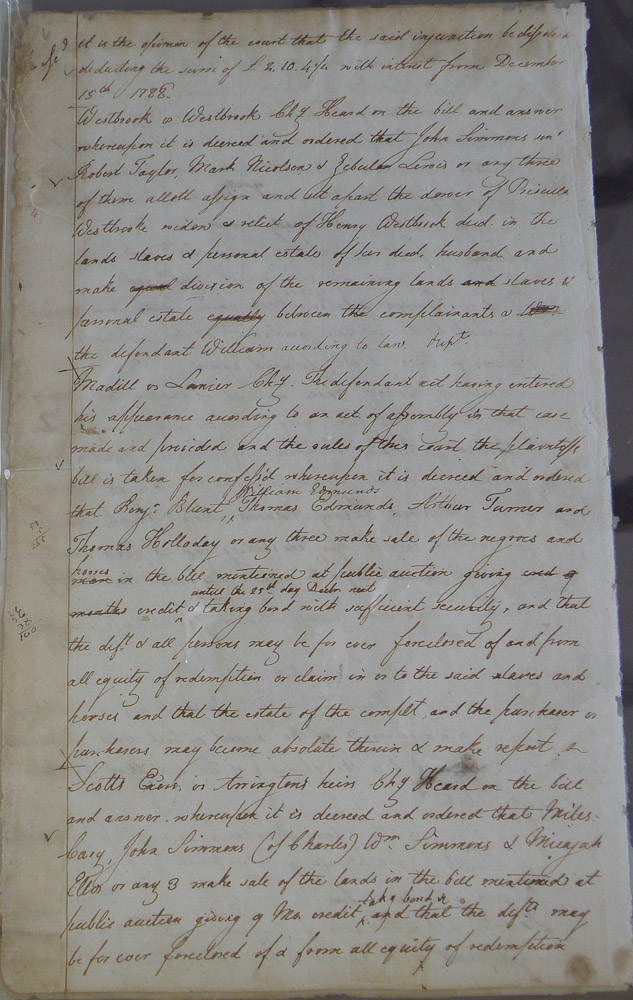 it is the opinion of the court that the said injunction be
deducting the sum of £ 2.10.4½ with interest from December
15th 1788.
Westbrook vs Westbrook Chy Heard on the bill and answer
whereupon it is decreed and ordered that John Simmons senr
Robert Taylor, Mark Nicolson & Zebulon Lewis or any three
of them allott assign and set apart the dower of Priscilla
Westbrooke widow & relict of Henry Westbrook decd. in the
lands slaves & personal estate of her decd. husband and
make equal division of the remaining lands and slaves &
personal estate equally between the complainants &
the defendant William according to law.
Madill vs Lanier Chy. The defendant not having entered
his appearance according to an act of assembly in that case
made and provided and the rules of this court the plaintiffs
bill is taken for confess'd whereupon it is decreed and ordered
William Edmunds
that Benja. Blunt, Thomas Edmunds, Arthur Turner and
Thomas Holladay or any three make sale of the negroes and
horses
in the bill mentioned at public auction giving
untill the 25th day Decbr next
months credit & taking bond with sufficient security, and that
the deft. & all persons may be for ever foreclosed of and from
all equity of redemption or claim in or to the said slaves and
horses and that the estate of the complt and the purchaser or
purchasers may become absolute therein & make report
Scotts Exors. vs Arringtons heirs Chy Heard on the bill
and answer. whereupon it is decreed and ordered that Miles
Cary, John Simmons (of Charles) Wm. Simmons & Micajah
Ellis or any 3 make sale of the lands in the bill mentioned at
takg bond &
public auction giving 9 Mo. credit and that the defts may
be for ever foreclosed of & from all equity of redemption